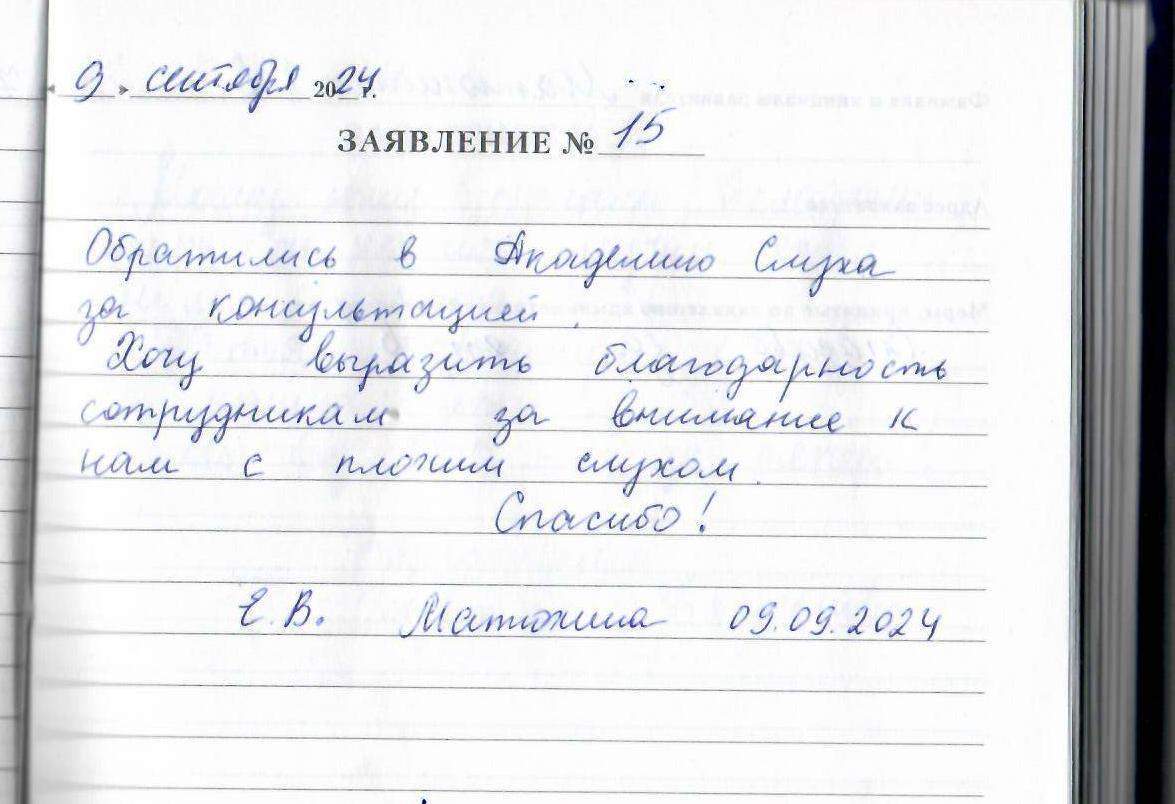 « 9 » сентября 2024 г.
ЗАЯВЛЕНИЕ № 15
Обратились в Академию Слуха
за консультацией.
Хочу выразить благодарность
сотрудникам за внимание к
нам с плохим слухом.
Спасибо!
Е. В. Матюхина 09.09.2024